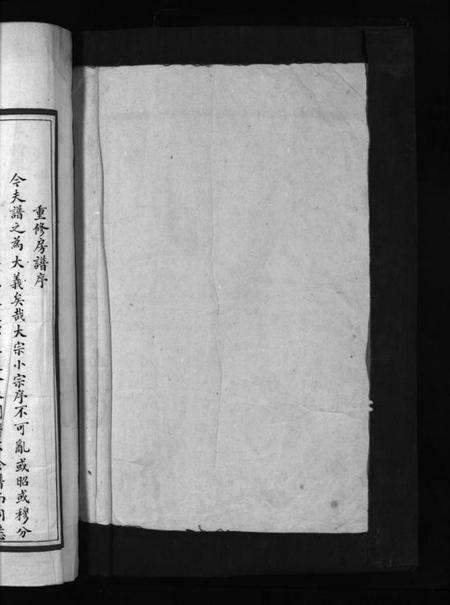 重修房譜序
今夫譜之為大義矣哉大宗小宗序不可亂或昭或穆分